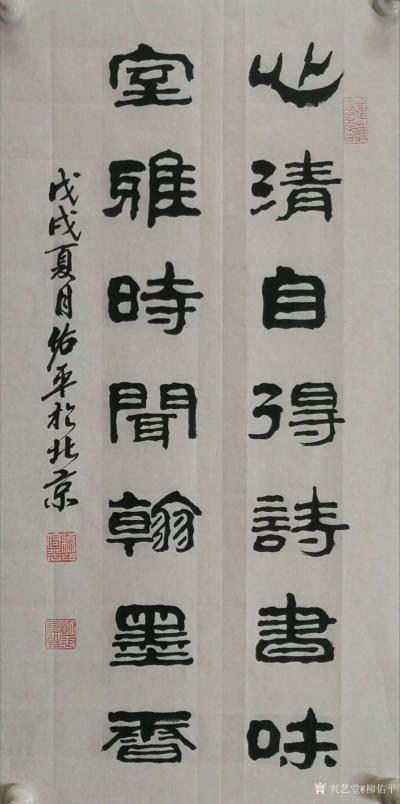 心清自得詩書味
室雅時聞翰墨香
戊戌夏月佑平於北京
兴艺堂@柳佑平